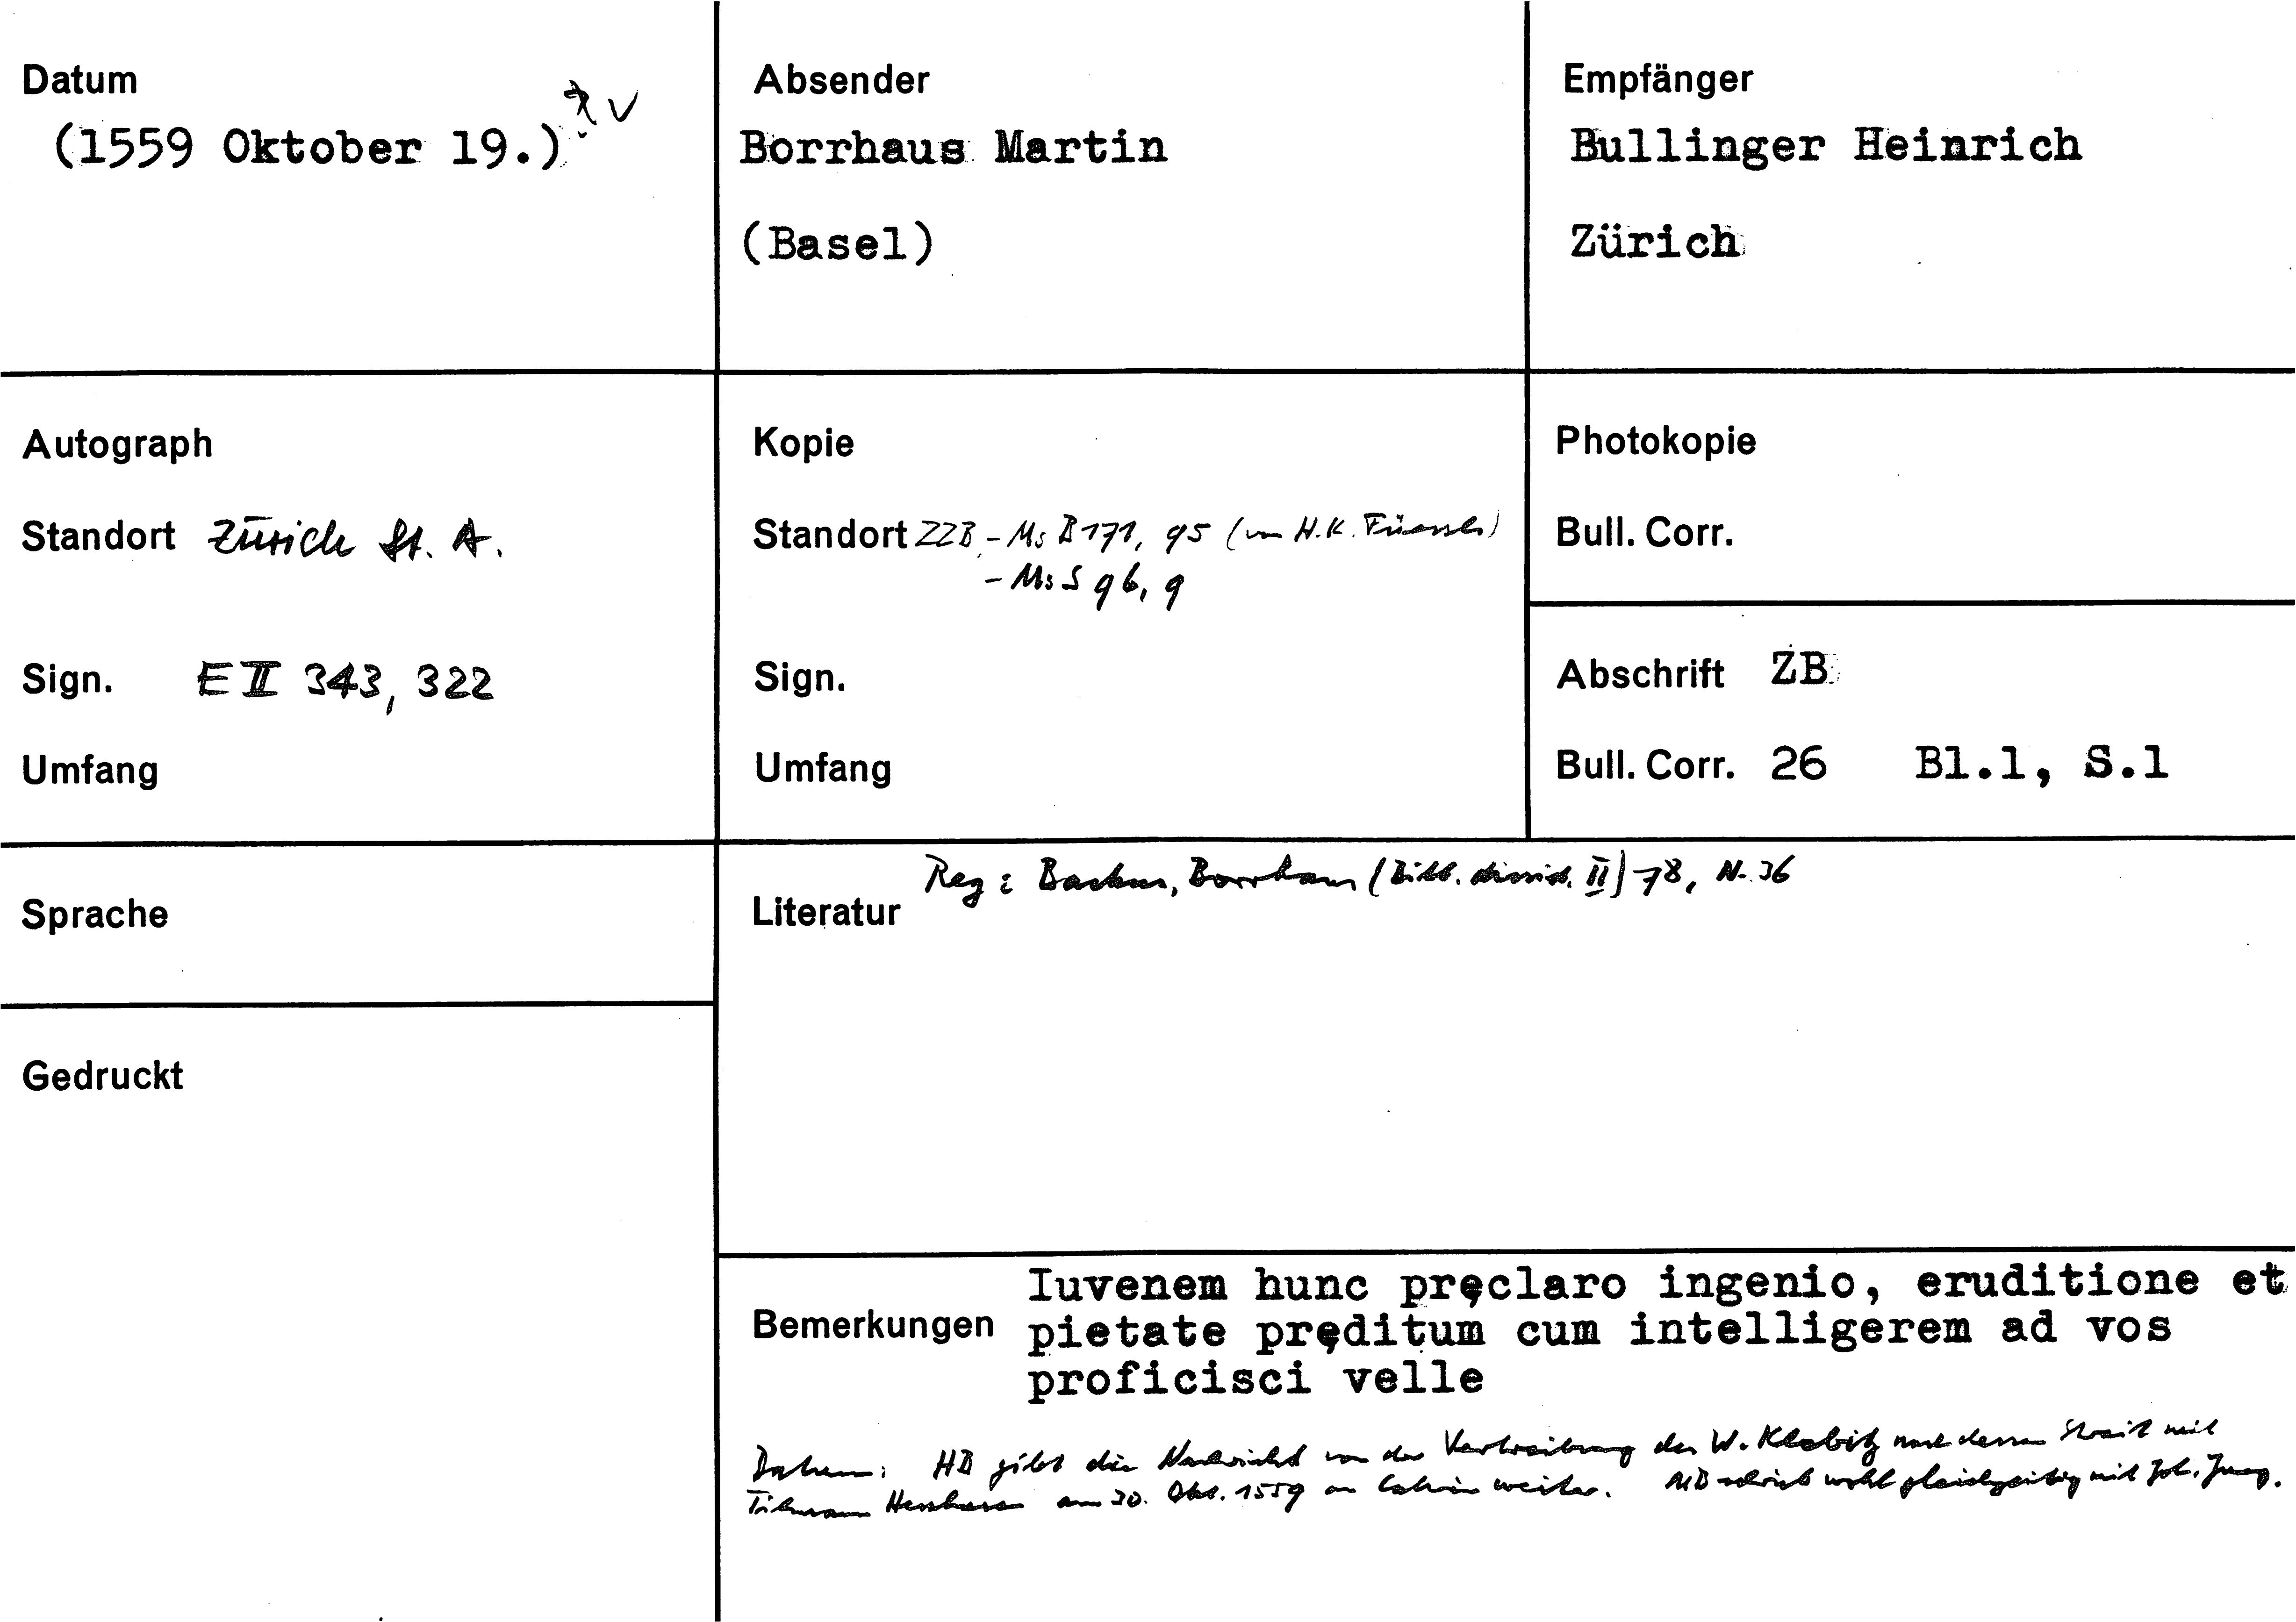 Datum
(1559 Oktober 19.)? v
Absender
Borrhaus Martin
(Basel)
Empfänger
Bullinger Heinrich
Zürich
Autograph
Standort Zürich St. A.
Sign. E II 343, 322
Umfang
Kopie
Standort ZZB, - Ms B 171, 95 (von H.K. Füessli)
- Ms S 96, 9
Sign.
Umfang
Photokopie
Bull. Corr.
Abschrift ZB
Bull. Corr. 26 Bl.1, S.1
Sprache
Gedruckt
Reg: Backus, Borrhaus (Bibl. dissid. II) 78, N. 36
Literatur
Bemerkungen
Iuvenem hunc pręclaro ingenio, eruditione et
pietate pręditum cum intelligerem ad vos
proficisci velle
Datum: HB gibt die Nachricht von der Vertreibung des W. Klebitz nach dessen Streit mit
Tilemann Hesshus am 30. Okt. 1559 an Calvin weiter. MB schrieb wohl gleichzeitig mit Joh. Jung.